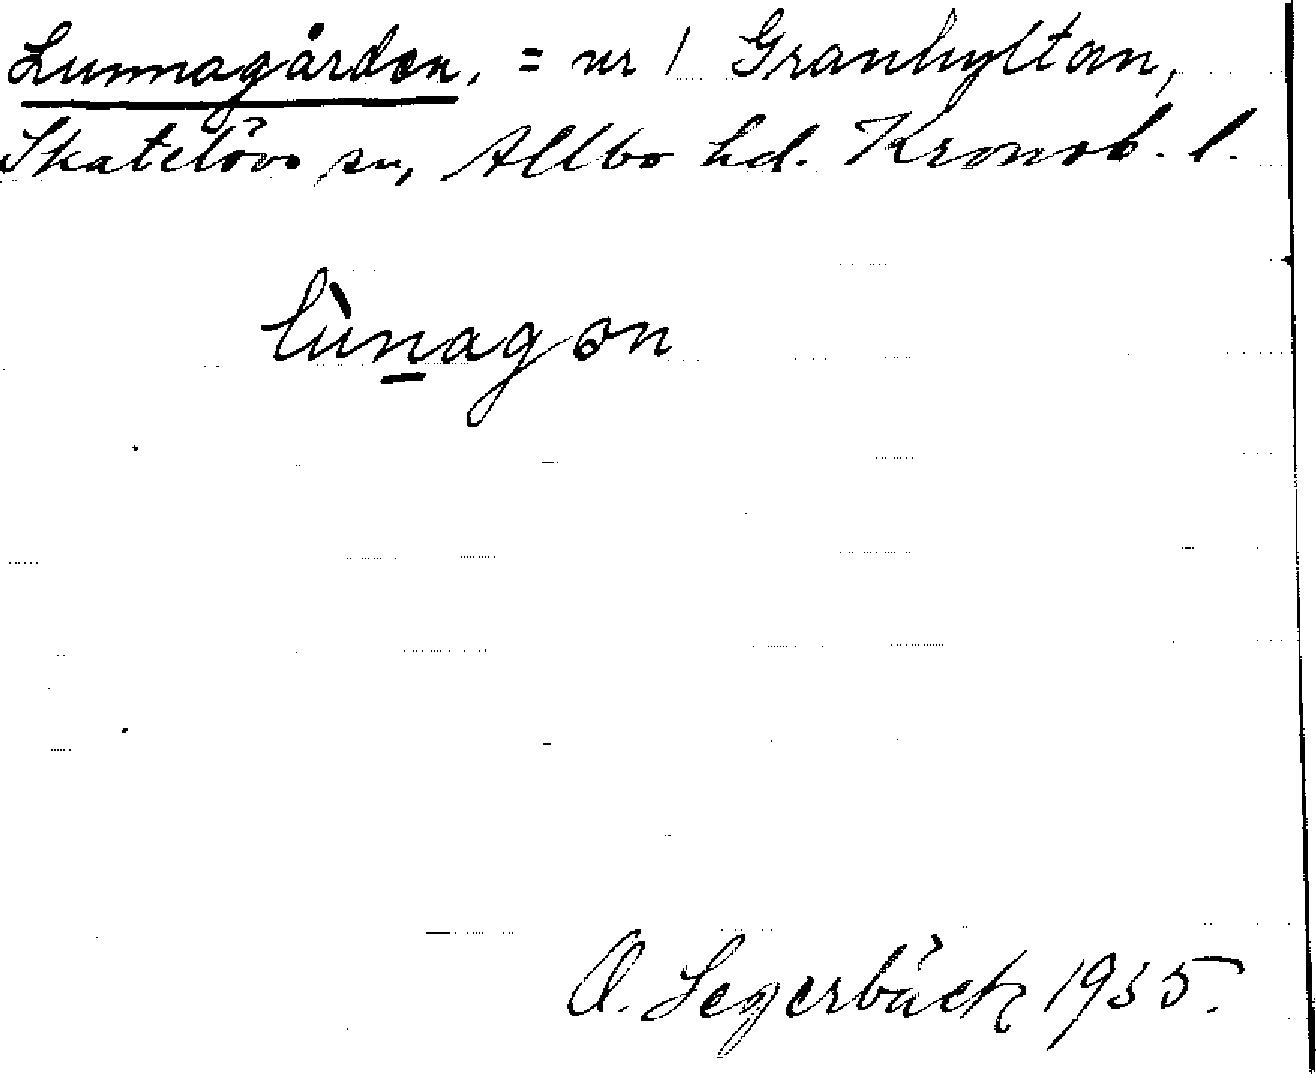 Lunnagården, = nr 1 Granhyltan,
Skatelövs sn, Allbo hd. Kronob. l.
lùnagɵn
O. Segerbäck 1935.